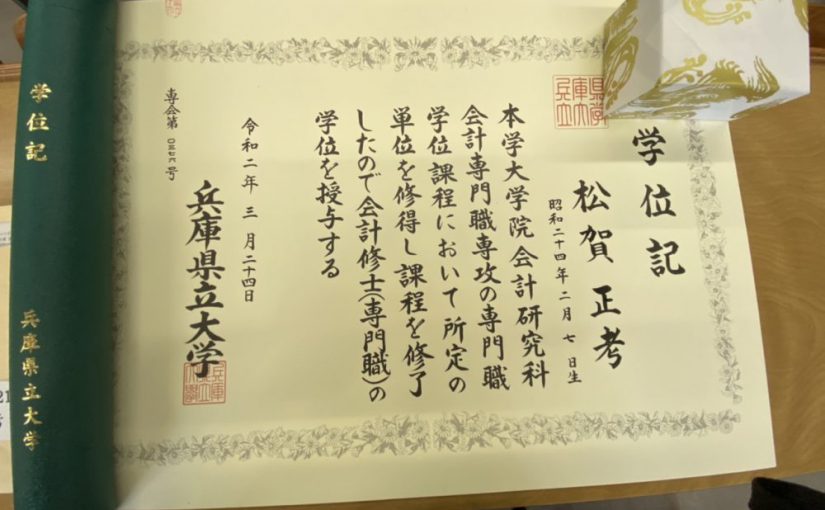 学位記
松賀正考
昭和二十四年二月七日生
本学大学院会計研究科
会計専門職専攻の専門職
学位課程において所定の
単位を修得し課程を修了
したので会計修士(専門職)の
学位を授与する
令和二年三月二十四日
兵庫県立大学
専会第〇三七六号
学位記
兵庫県立大学